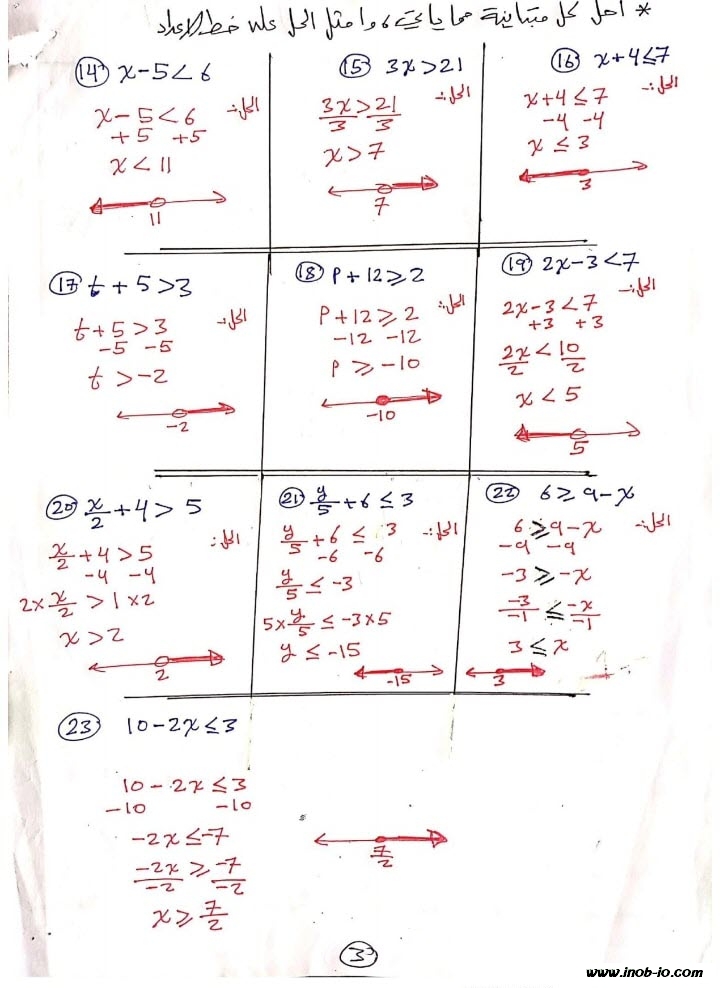 * أحل كل متباينة مما يأتي، وأمثل الحل على خط الأعداد
(14) x-5<6
الحل:-
x-5<6
+5 +5
x<11
11
(15) 3x>21
الحل:-
3x>21
3 3
x>7
7
(16) x+4≤7
الحل:-
x+4≤7
-4 -4
x≤3
3
(17) t+5>3
الحل:-
t+5>3
-5 -5
t>-2
-2
(18) P+12≥2
الحل:-
P+12≥2
-12 -12
P≥-10
-10
(19) 2x-3<7
الحل:-
2x-3<7
+3 +3
2x/2<10/2
x<5
5
(20) x/2+4>5
الحل:
x/2+4>5
-4 -4
2×x/2>1×2
x>2
2
(21) y/5+6≤3
الحل:-
y/5+6≤3
-6 -6
y/5≤-3
5×y/5≤-3×5
y≤-15
-15
(22) 6≥9-x
الحل:-
6≥9-x
-9 -9
-3≥-x
-3/-1≤-x/-1
3≤x
3
(23) 10-2x≤3
10-2x≤3
-10 -10
-2x≤-7
-2x/-2≥-7/-2
x≥7/2
7/2
3
www.inob-jo.com